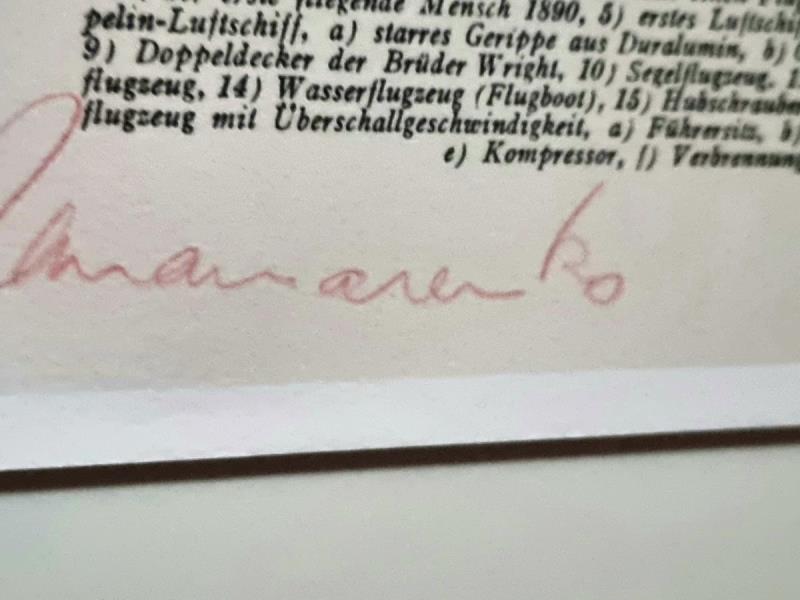 fliegende Mensch 1890, 5) erstes Luftschif
pelin-Luftschiff, a) starres Gerippe aus Duralumin, b)
9) Doppeldecker der Brüder Wright, 10) Segelflugzeug, 1
flugzeug, 14) Wasserflugzeug (Flugboot), 15) Hubschraube
flugzeug mit Überschallgeschwindigkeit, a) Führersitz, b)
e) Kompressor, f) Verbrennung
Panamarenko